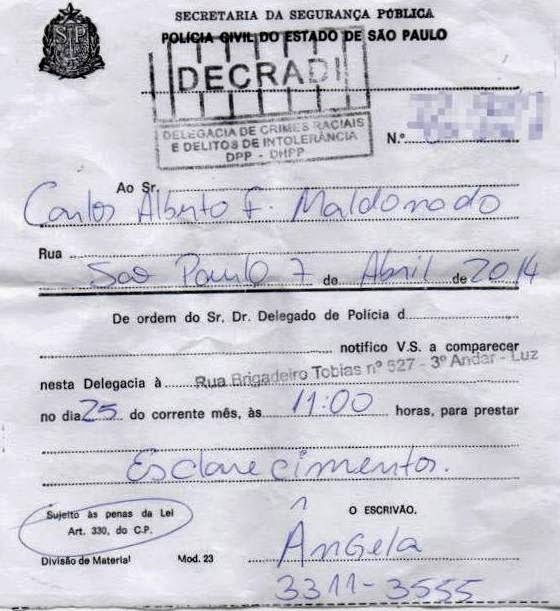 SECRETARIA DA SEGURANÇA PÚBLICA
POLÍCIA CIVIL DO ESTADO DE SÃO PAULO
SP
DECRADI
DELEGACIA DE CRIMES RACIAIS
E DELITOS DE INTOLERÂNCIA
DPP - DHPP
N.º
Ao Sr.
Carlos Alberto F. Maldonado
Rua
Sao Paulo 7 de Abril de 2014
De ordem do Sr. Dr. Delegado de Polícia d
notifico V.S. a comparecer
nesta Delegacia à Rua Brigadeiro Tobias nº 527 - 3º Andar - Luz
no dia 25 do corrente mês, às 11:00 horas, para prestar
Esclarecimentos.
Sujeito às penas da Lei
Art. 330, do C.P.
O ESCRIVÃO,
Divisão de Material Mod. 23
Ângela
3311-3555